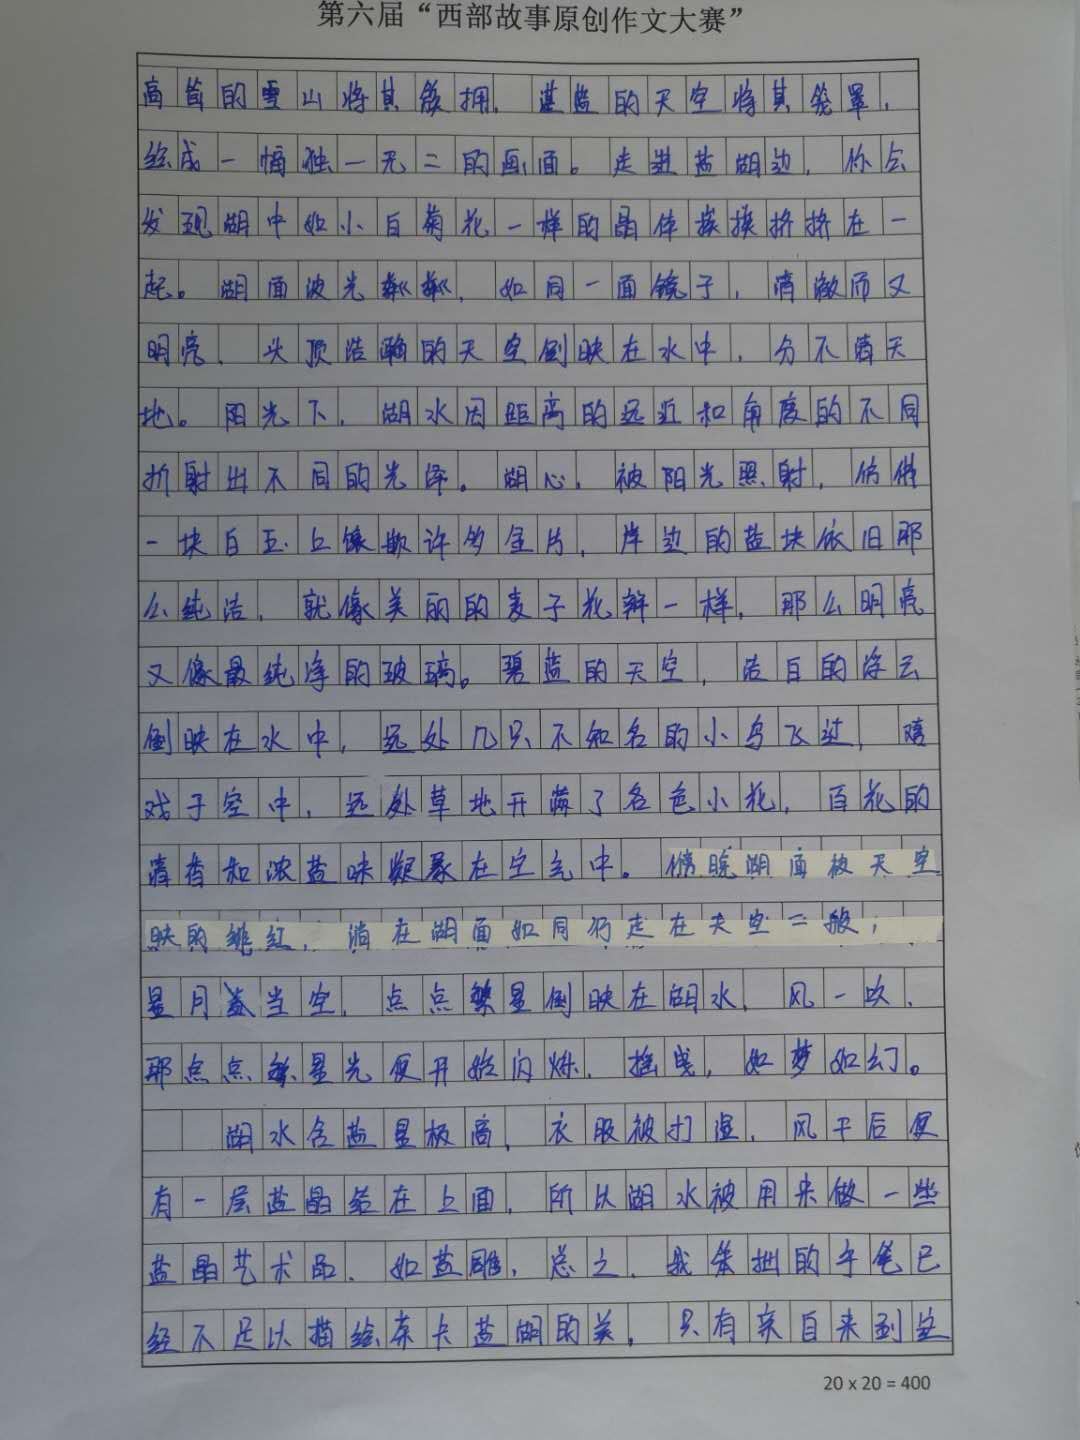 第六届“西部故事原创作文大赛”
高耸的雪山将其簇拥，湛蓝的天空将其笼罩，
绘成一幅独一无二的画面。走进盐湖边，你会
发现湖中如小白菊花一样的晶体挨挨挤挤在一
起。湖面波光粼粼，如同一面镜子，清澈而又
明亮，头顶浩瀚的天空倒映在水中，分不清天
地。阳光下，湖水因距离的远近和角度的不同
折射出不同的光泽。湖心，被阳光照射，仿佛
一块白玉上镶嵌许多金片，岸边的盐块依旧那
么纯洁，就像美丽的麦子花辫一样，那么明亮
又像最纯净的玻璃。碧蓝的天空，洁白的浮云
倒映在水中，远处几只不知名的小鸟飞过，嬉
戏于空中，远处草地开满了各色小花，百花的
清香和浓盐味凝聚在空气中。傍晚湖面被天空
映的绯红，淌在湖面如同行走在天空二般，
星月当空，点点繁星倒映在湖水，风一吹，
那点点繁星光便开始闪烁，摇曳，如梦如幻。
湖水含盐量极高，衣服被打湿，风干后便
有一层盐晶结在上面，所以湖水被用来做一些
盐晶艺术品，如盐雕，总之，我笨拙的手笔已
经不足以描绘茶卡盐湖的美，只有亲自来到这
20 x 20 = 400